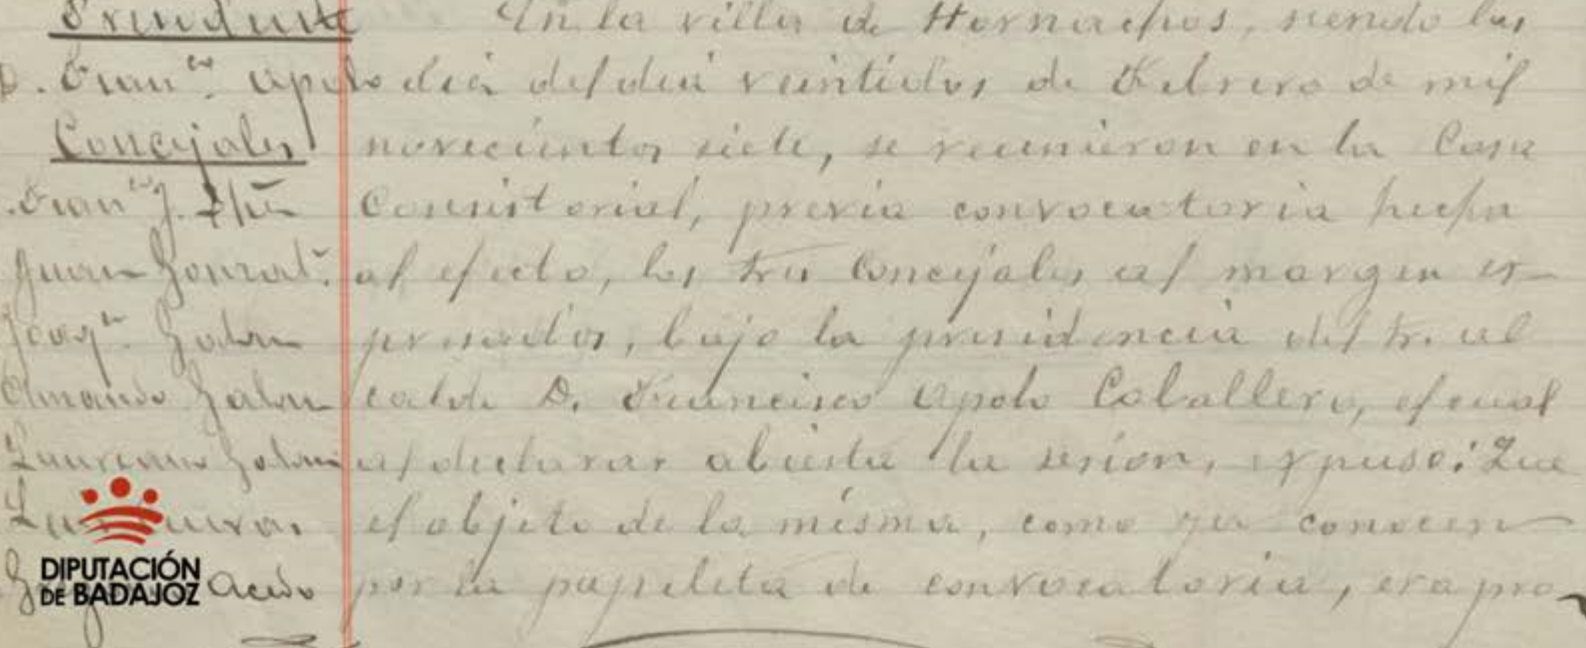 Presidente
D. Franco. Apolo
Concejales
Juan Gonzal.
Joaqn. Galán
Amando Galán
Laureano Galán
Acedo
En la villa de Hornachos, siendo las
diez del dia veintidos de Febrero de mil
novecientos siete, se reunieron en la Casa
Consistorial, previa convocatoria hecha
al efecto, los tres Concejales al margen es-
presados, bajo la presidencia del Sr. al
calde D. Francisco Apolo Caballero, el cual
al declarar abierta la sesion, expuso: Que
el objeto de la misma, como ya conocen
por la papeleta de convocatoria, era pro
DIPUTACIÓN
DE BADAJOZ